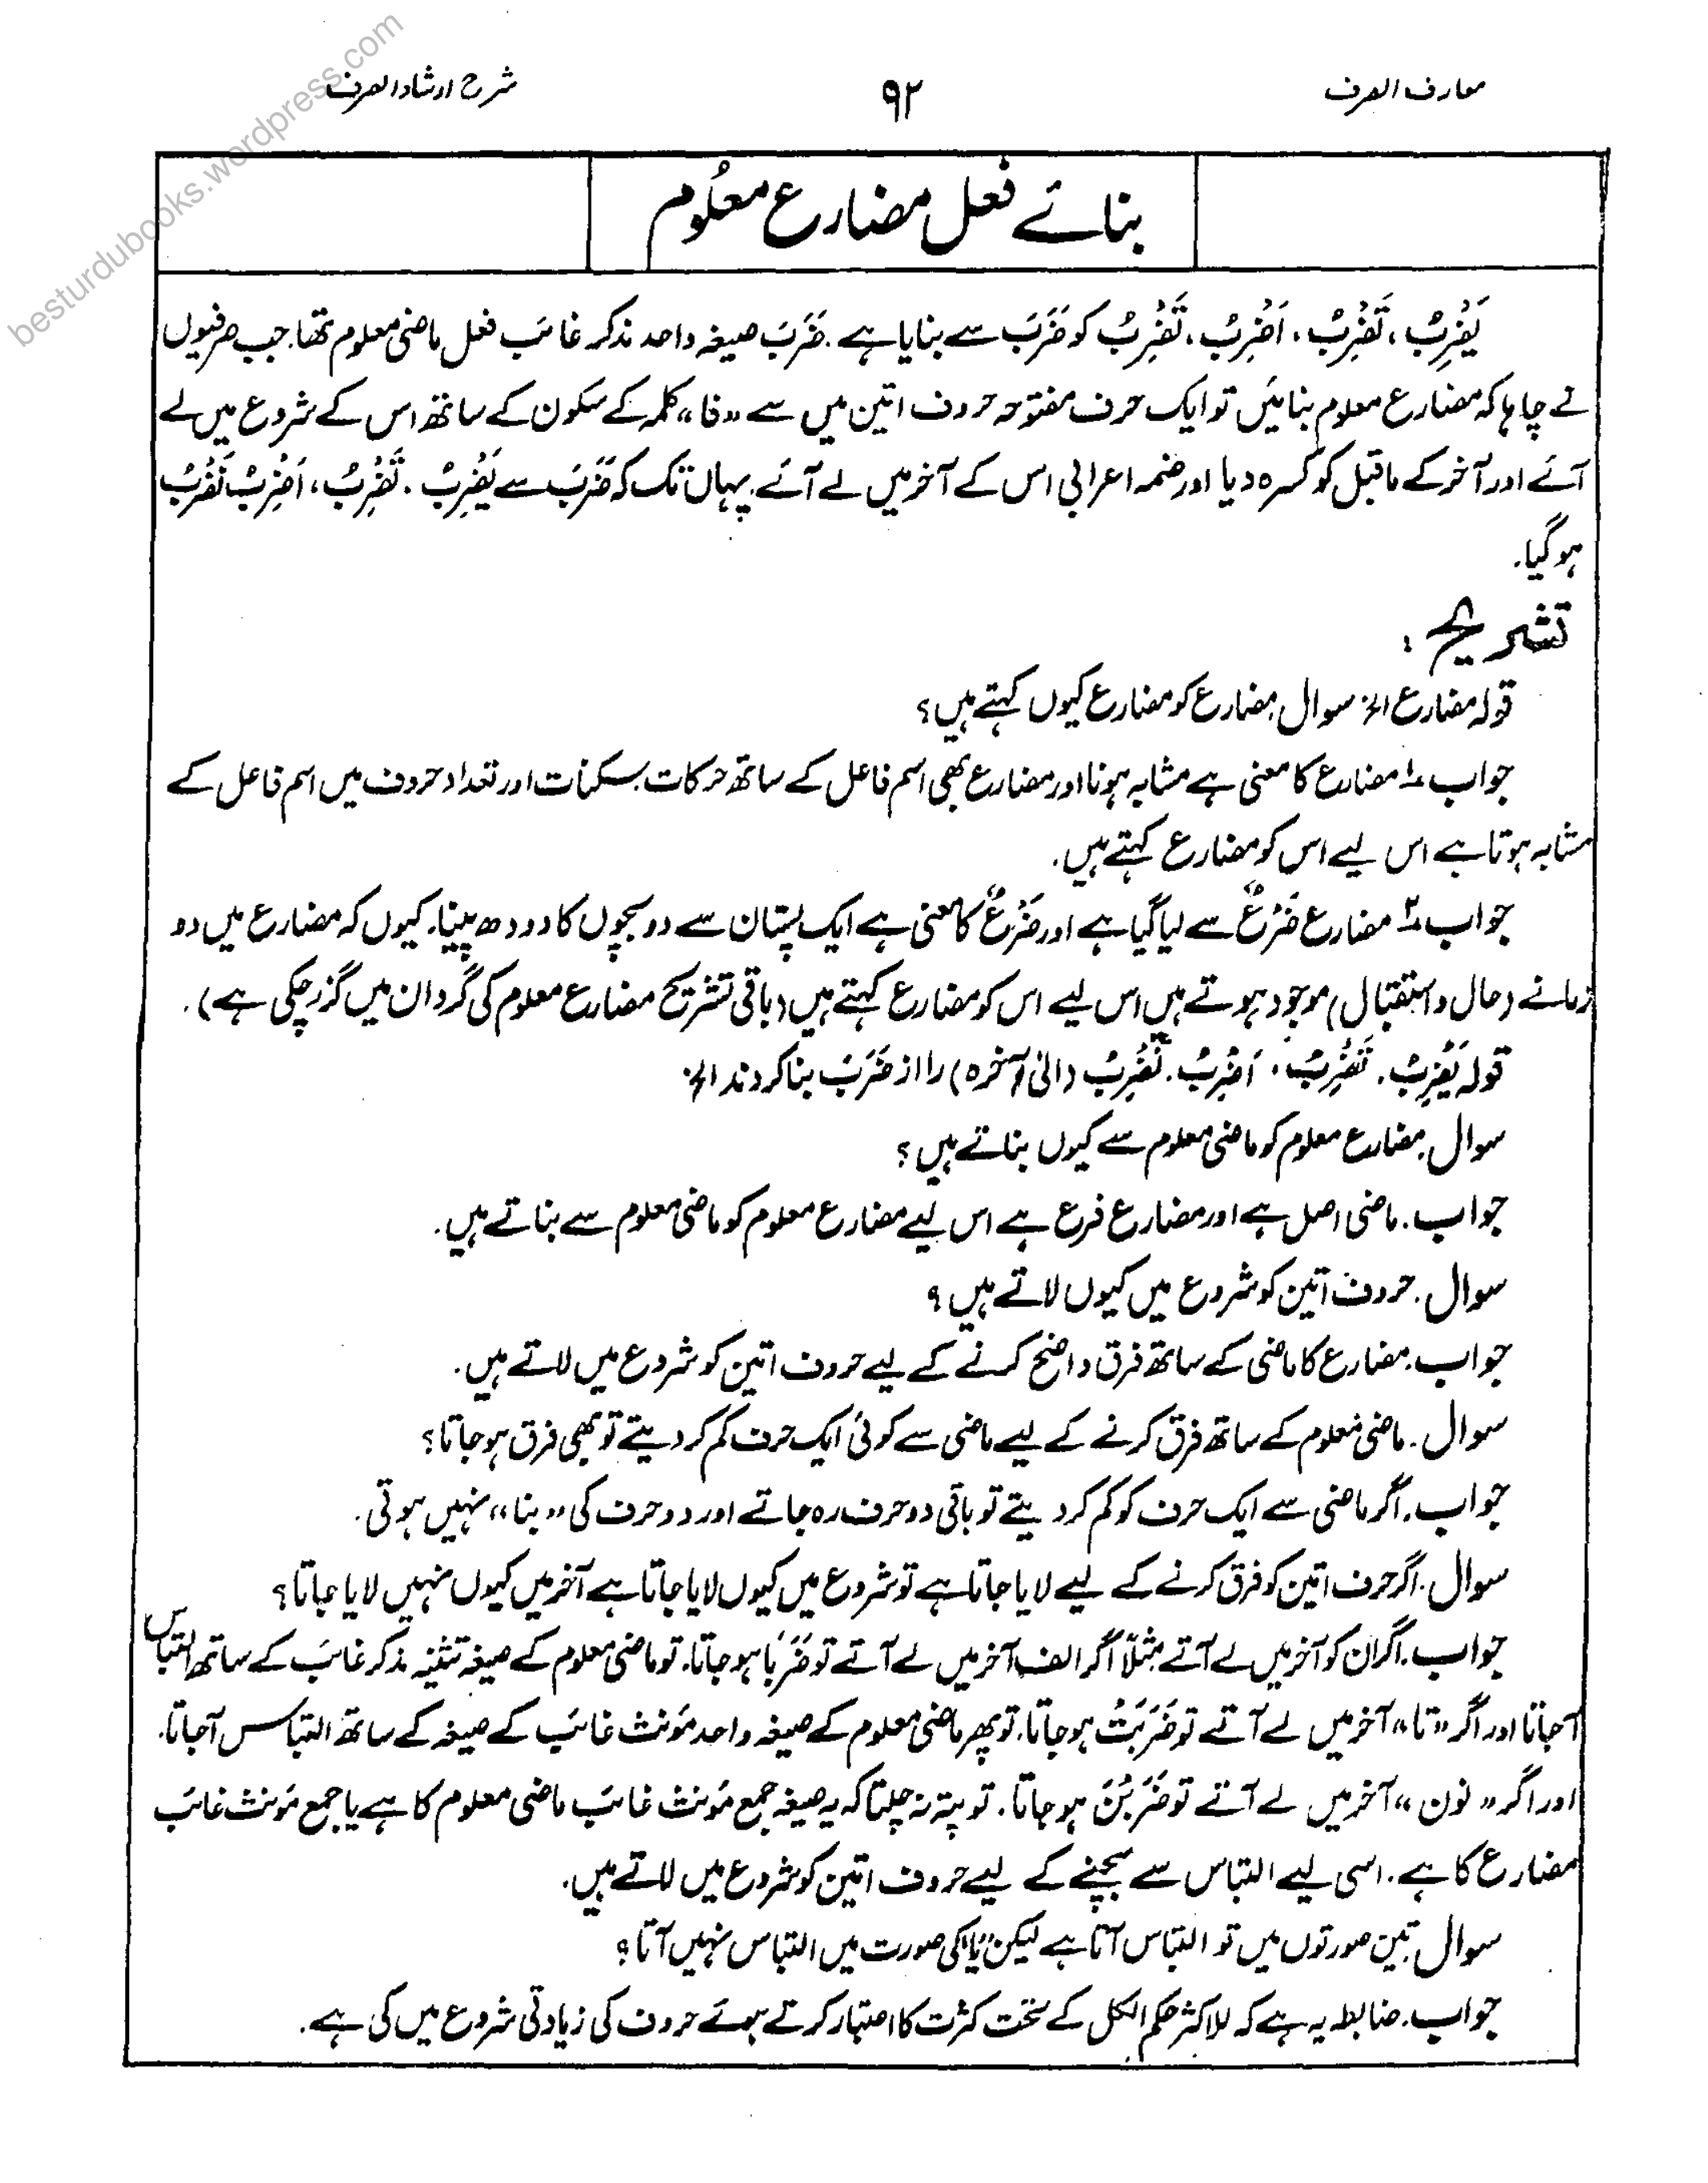 معارف الصرف
۹۲
شرح ارشاد الصرف
besturdubooks.wordpress.com
بنائے فعل مضارع معلُوم
یَضْرِبُ ، تَضْرِبُ ، اَضْرِبُ ، نَضْرِبُ کو ضَرَبَ سے بنایا ہے . ضَرَبَ صیغہ واحد مذکر غائب فعل ماضی معلوم تھا . جب صرفیوں
نے چاہا کہ مضارع معلوم بنائیں تو ایک حرف مفتوحہ حروف اتین میں سے «فا» کلمہ کے سکون کے ساتھ اس کے شروع میں لے
آئے اور آخر کے ماقبل کو کسرہ دیا اور ضمہ اعرابی اس کے آخر میں لے آئے . یہاں تک کہ ضَرَبَ سے یَضْرِبُ ، تَضْرِبُ ، اَضْرِبُ نَضْرِبُ
ہو گیا .
تشریح :
قولہ مضارع الخ سوال . مضارع کو مضارع کیوں کہتے ہیں ؟
جواب ۱ مضارع کا معنی ہے مشابہ ہونا اور مضارع بھی اسم فاعل کے ساتھ حرکات سکنات اور تعداد حروف میں اسم فاعل کے
مشابہ ہوتا ہے اس لیے اس کو مضارع کہتے ہیں .
جواب ۲ مضارع ضَرْعٌ سے لیا گیا ہے اور ضَرْعٌ کا معنی ہے ایک پستان سے دو بچوں کا دودھ پینا . کیوں کہ مضارع میں دو
زمانے (حال و استقبال) موجود ہوتے ہیں اس لیے اس کو مضارع کہتے ہیں (باقی تشریح مضارع معلوم کی گردان میں گزر چکی ہے) .
قولہ یَضْرِبُ . تَضْرِبُ . اَضْرِبُ . نَضْرِبُ (الیٰ آخرہ) را از ضَرَبَ بنا کردند الخ
سوال . مضارع معلوم کو ماضی معلوم سے کیوں بناتے ہیں ؟
جواب . ماضی اصل ہے اور مضارع فرع ہے اس لیے مضارع معلوم کو ماضی معلوم سے بناتے ہیں .
سوال . حروف اتین کو شروع میں کیوں لاتے ہیں ؟
جواب . مضارع کا ماضی کے ساتھ فرق واضح کرنے کے لیے حروف اتین کو شروع میں لاتے ہیں .
سوال . ماضی معلوم کے ساتھ فرق کرنے کے لیے ماضی سے کوئی ایک حرف کم کر دیتے تو بھی فرق ہو جاتا ؟
جواب . اگر ماضی سے ایک حرف کو کم کر دیتے تو باقی دو حرف رہ جاتے اور دو حرف کی «بنا» نہیں ہوتی .
سوال . اگر حرف اتین کو فرق کرنے کے لیے لایا جاتا ہے تو شروع میں کیوں لایا جاتا ہے آخر میں کیوں نہیں لایا جاتا ؟
جواب . اگر ان کو آخر میں لے آتے مثلاً اگر الف آخر میں لے آتے تو ضَرَبَا ہو جاتا . تو ماضی معلوم کے صیغہ تثنیہ مذکر غائب کے ساتھ التباس
آ جاتا اور اگر «تا» آخر میں لے آتے تو ضَرَبَتْ ہو جاتا . تو پھر ماضی معلوم کے صیغہ واحد مؤنث غائب کے صیغہ کے ساتھ التباس آ جاتا .
اور اگر «نون» آخر میں لے آتے تو ضَرَبْنَ ہو جاتا . تو پتہ نہ چلتا کہ یہ صیغہ جمع مؤنث غائب ماضی معلوم کا ہے یا جمع مؤنث غائب
مضارع کا ہے . اسی لیے التباس سے بچنے کے لیے حروف اتین کو شروع میں لاتے ہیں .
سوال تین صورتوں میں تو التباس آتا ہے لیکن «یا» کی صورت میں التباس نہیں آتا ؟
جواب . ضابطہ یہ ہے کہ للاکثر حکم الکل کے تحت کثرت کا اعتبار کرتے ہوئے حروف کی زیادتی شروع میں کی ہے .